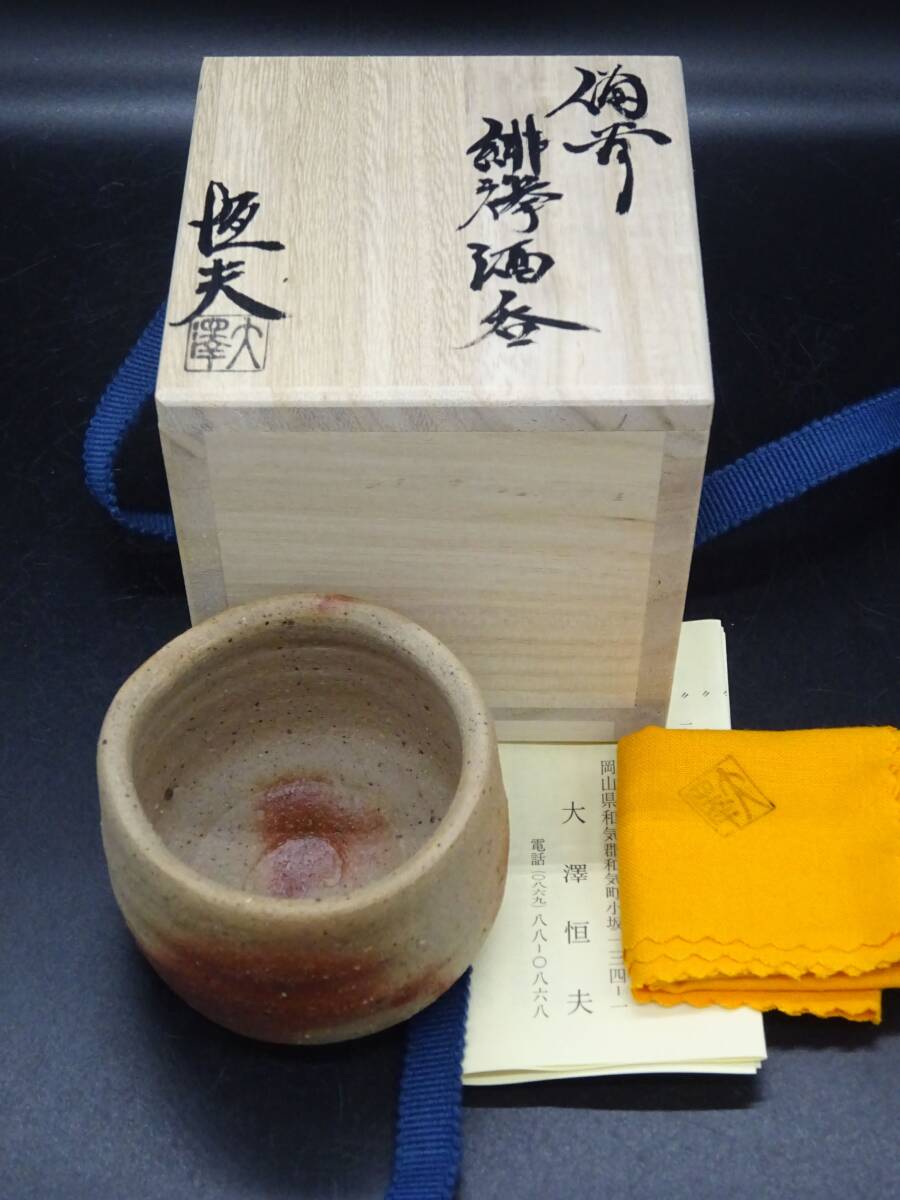 備前
緋襷酒呑
恒夫
大澤
岡山県和気郡和気町小坂一三四ー一
大澤恒夫
電話(〇八六九)八八ー〇八六八
大澤